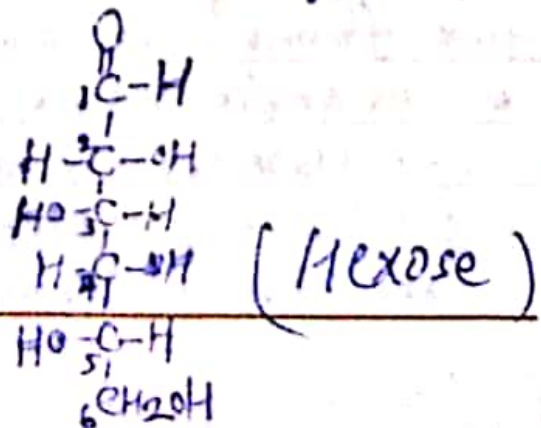 O
1C-H
H-2C-OH
HO-3C-H
H-4C-OH
(Hexose)
HO-5C-H
6CH2OH